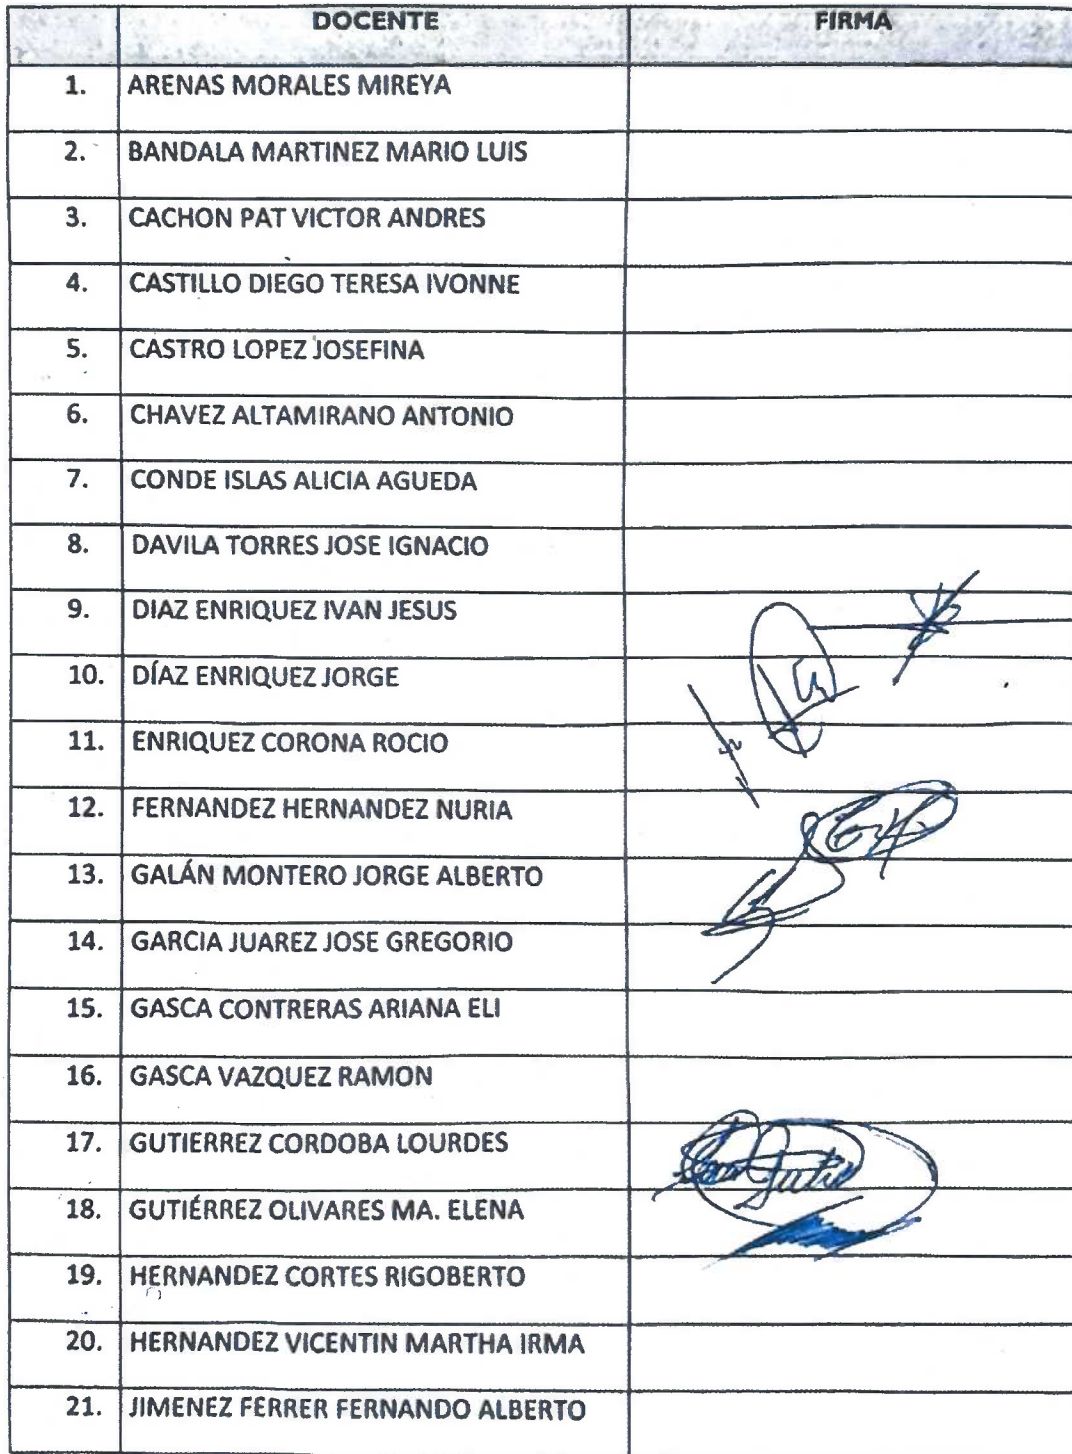 DOCENTE FIRMA
1. ARENAS MORALES MIREYA
2. BANDALA MARTINEZ MARIO LUIS
3. CACHON PAT VICTOR ANDRES
4. CASTILLO DIEGO TERESA IVONNE
5. CASTRO LOPEZ JOSEFINA
6. CHAVEZ ALTAMIRANO ANTONIO
7. CONDE ISLAS ALICIA AGUEDA
8. DAVILA TORRES JOSE IGNACIO
9. DIAZ ENRIQUEZ IVAN JESUS
10. DÍAZ ENRIQUEZ JORGE
11. ENRIQUEZ CORONA ROCIO
12. FERNANDEZ HERNANDEZ NURIA
13. GALÁN MONTERO JORGE ALBERTO
14. GARCIA JUAREZ JOSE GREGORIO
15. GASCA CONTRERAS ARIANA ELI
16. GASCA VAZQUEZ RAMON
17. GUTIERREZ CORDOBA LOURDES
18. GUTIÉRREZ OLIVARES MA. ELENA
19. HERNANDEZ CORTES RIGOBERTO
20. HERNANDEZ VICENTIN MARTHA IRMA
21. JIMENEZ FERRER FERNANDO ALBERTO